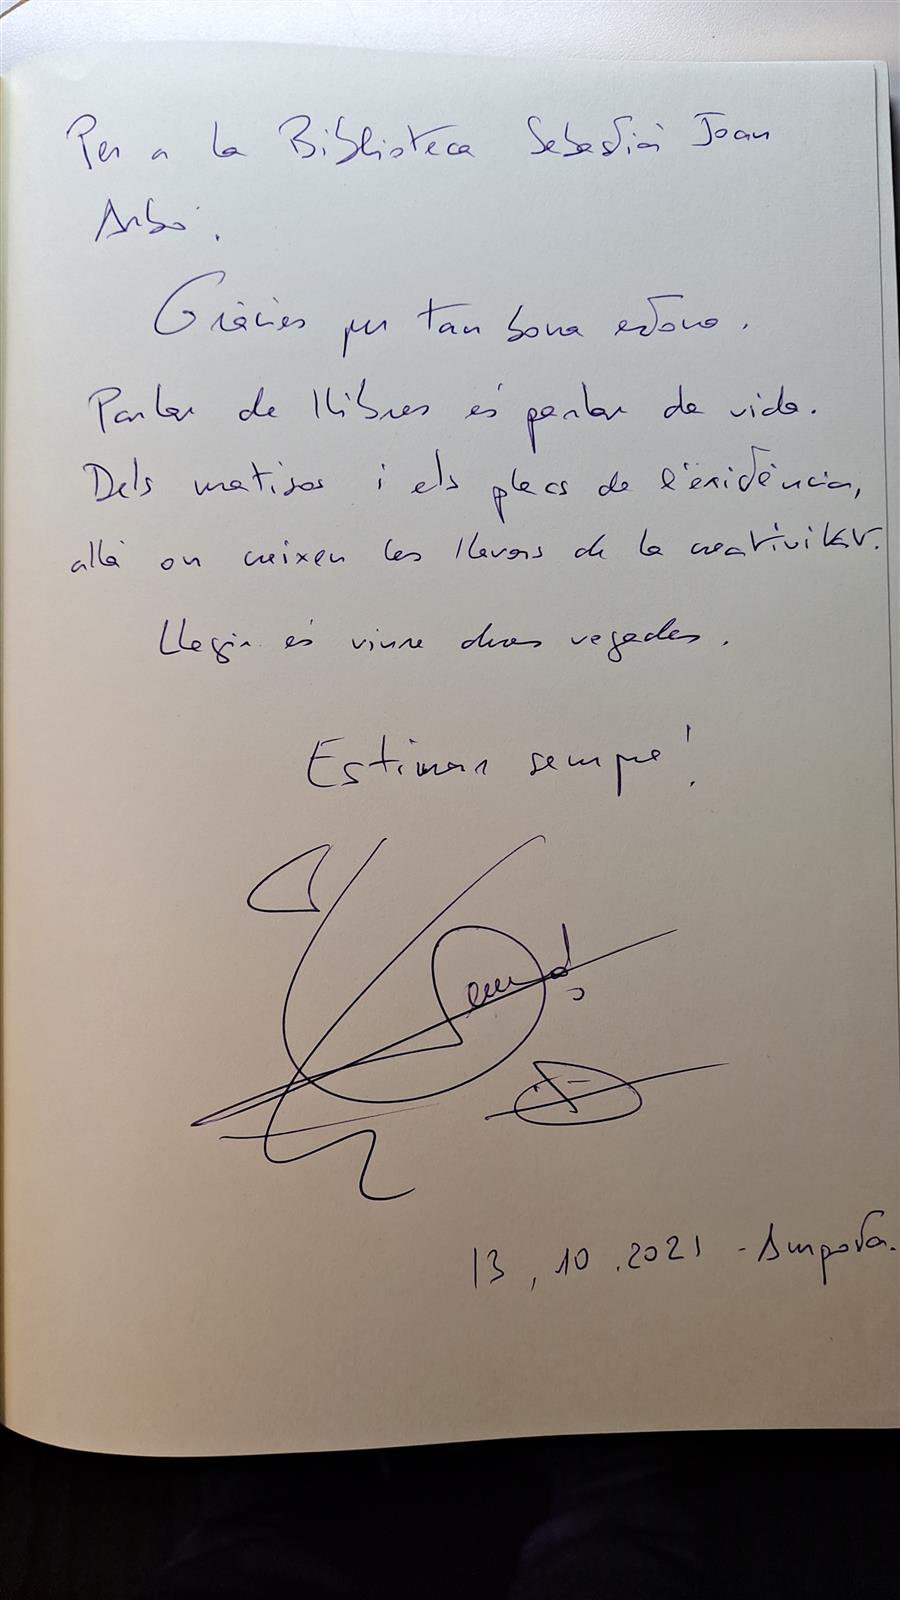 Per a la Biblioteca Sebastià Joan
Arbó.
Gràcies per tan bona estona.
Parlar de llibres és parlar de vida.
Dels matisos i els plecs de l'existència,
allà on creixen les llavors de la creativitat.
Llegir és viure dues vegades.
Estimar sempre!
13.10.2021 - Amposta.